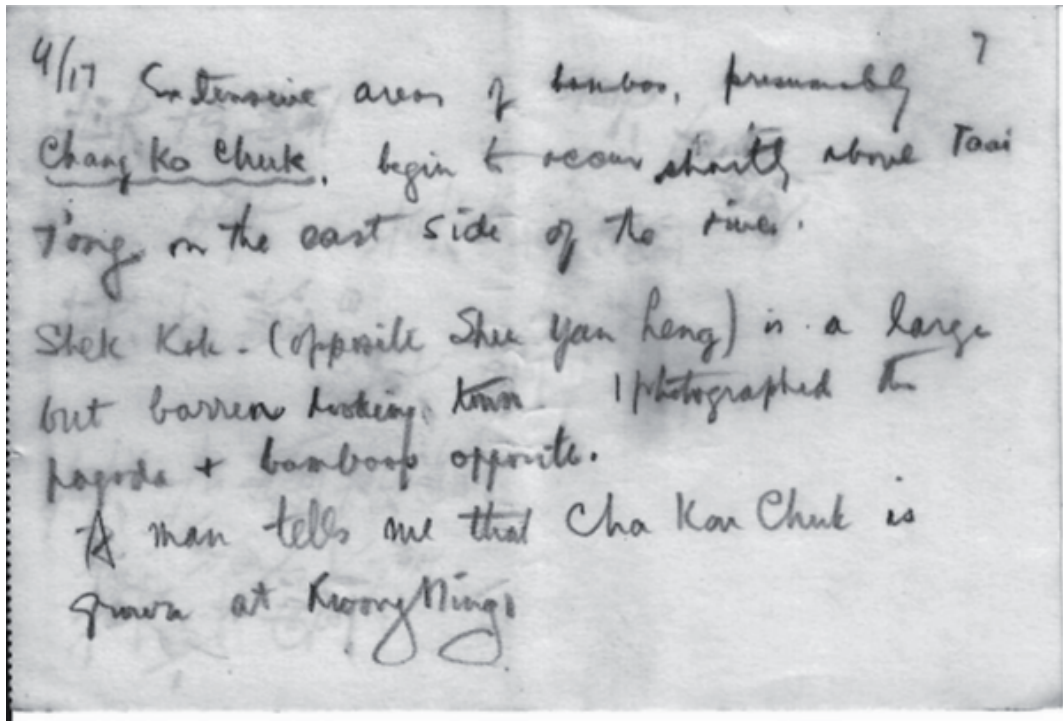 7
4/17 Extensive areas of bamboo, presumably
Chang Ko Chuk, begin to occur shortly above Taai
T'ong on the east side of the river.
Shek Kok - (opposite Shee Yan Leng) is a large
but barren looking town I photographed the
pagoda + bamboos opposite.
A man tells me that Cha Kon Chuk is
grown at Kwong Ning.